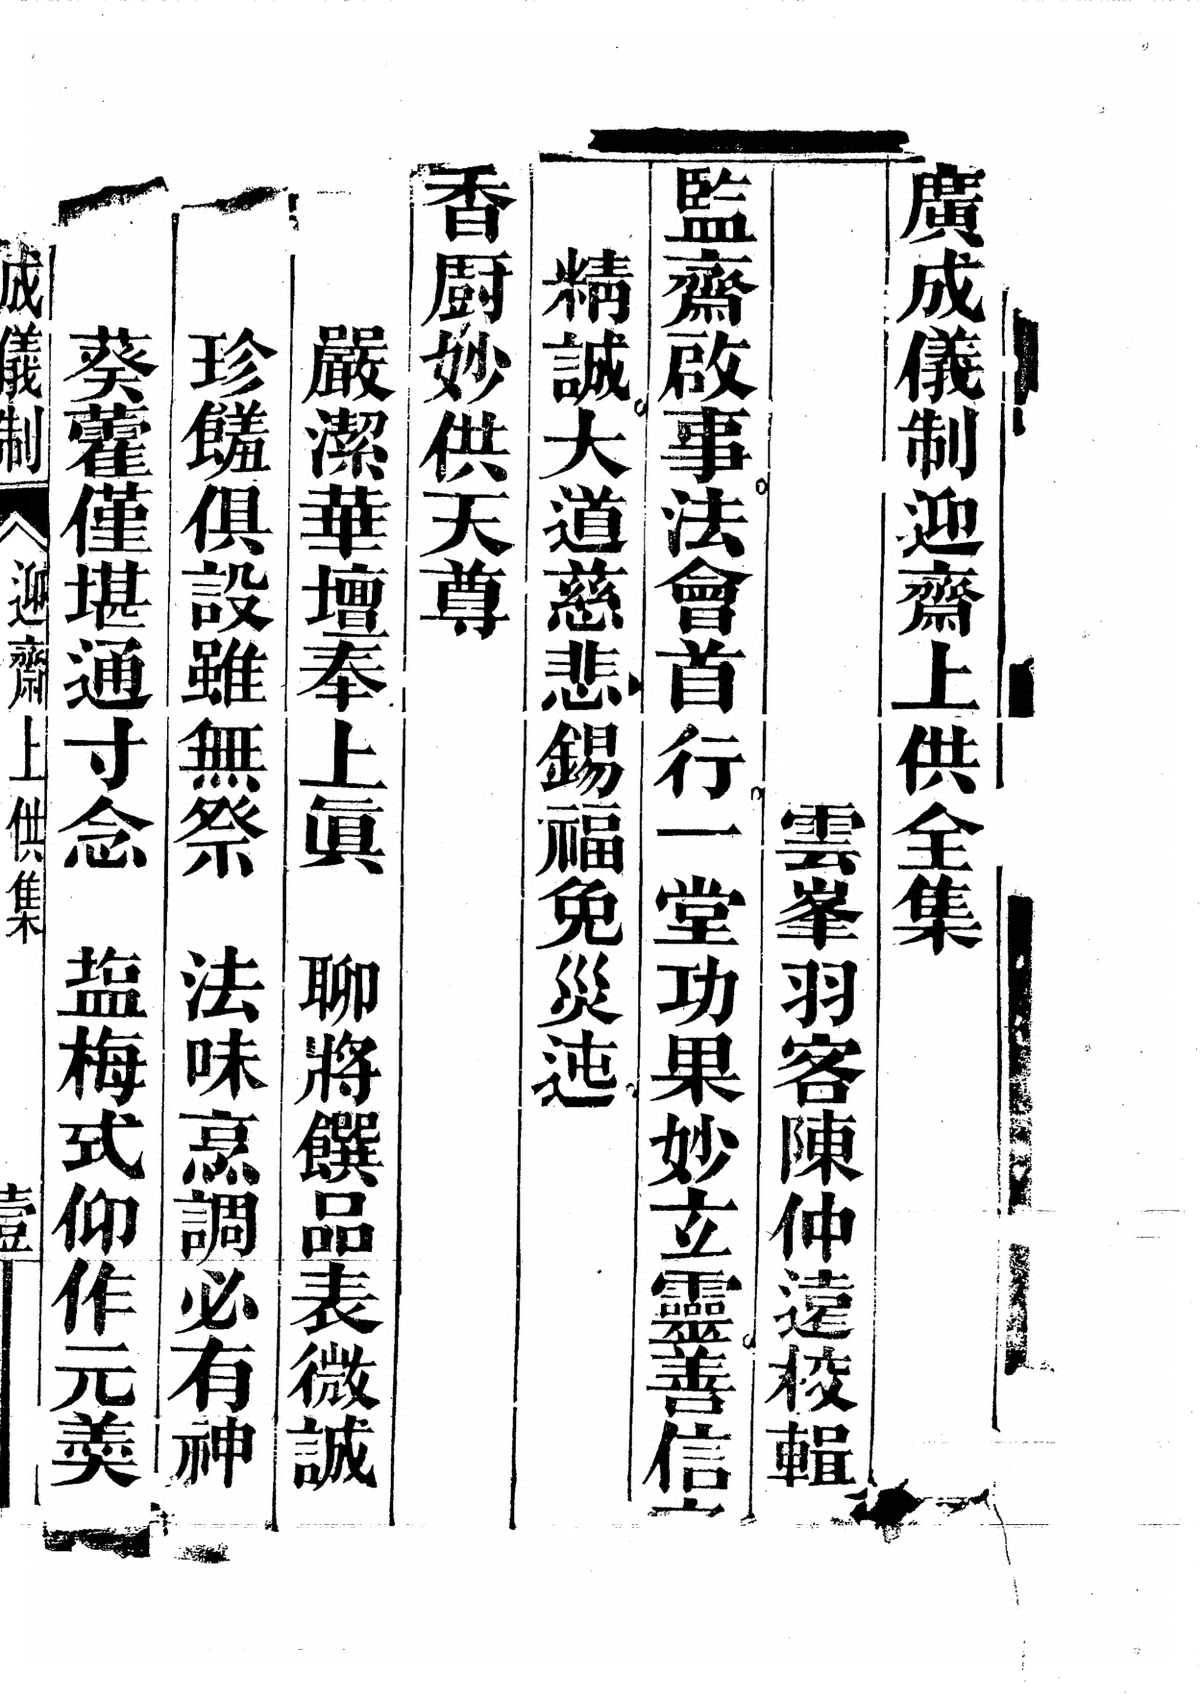 廣成儀制迎齋上供全集
雲峯羽客陳仲遠校輯
監齋啟事法會首行一堂功果妙立靈善信
精誠大道慈悲錫福免災迍
香厨妙供天尊
嚴潔華壇奉上眞　聊將饌品表微誠
珍饈俱設雖無祭　法味烹調必有神
葵藿僅堪通寸念　塩梅式仰作元羮
成儀制　迎齋上供集　壹